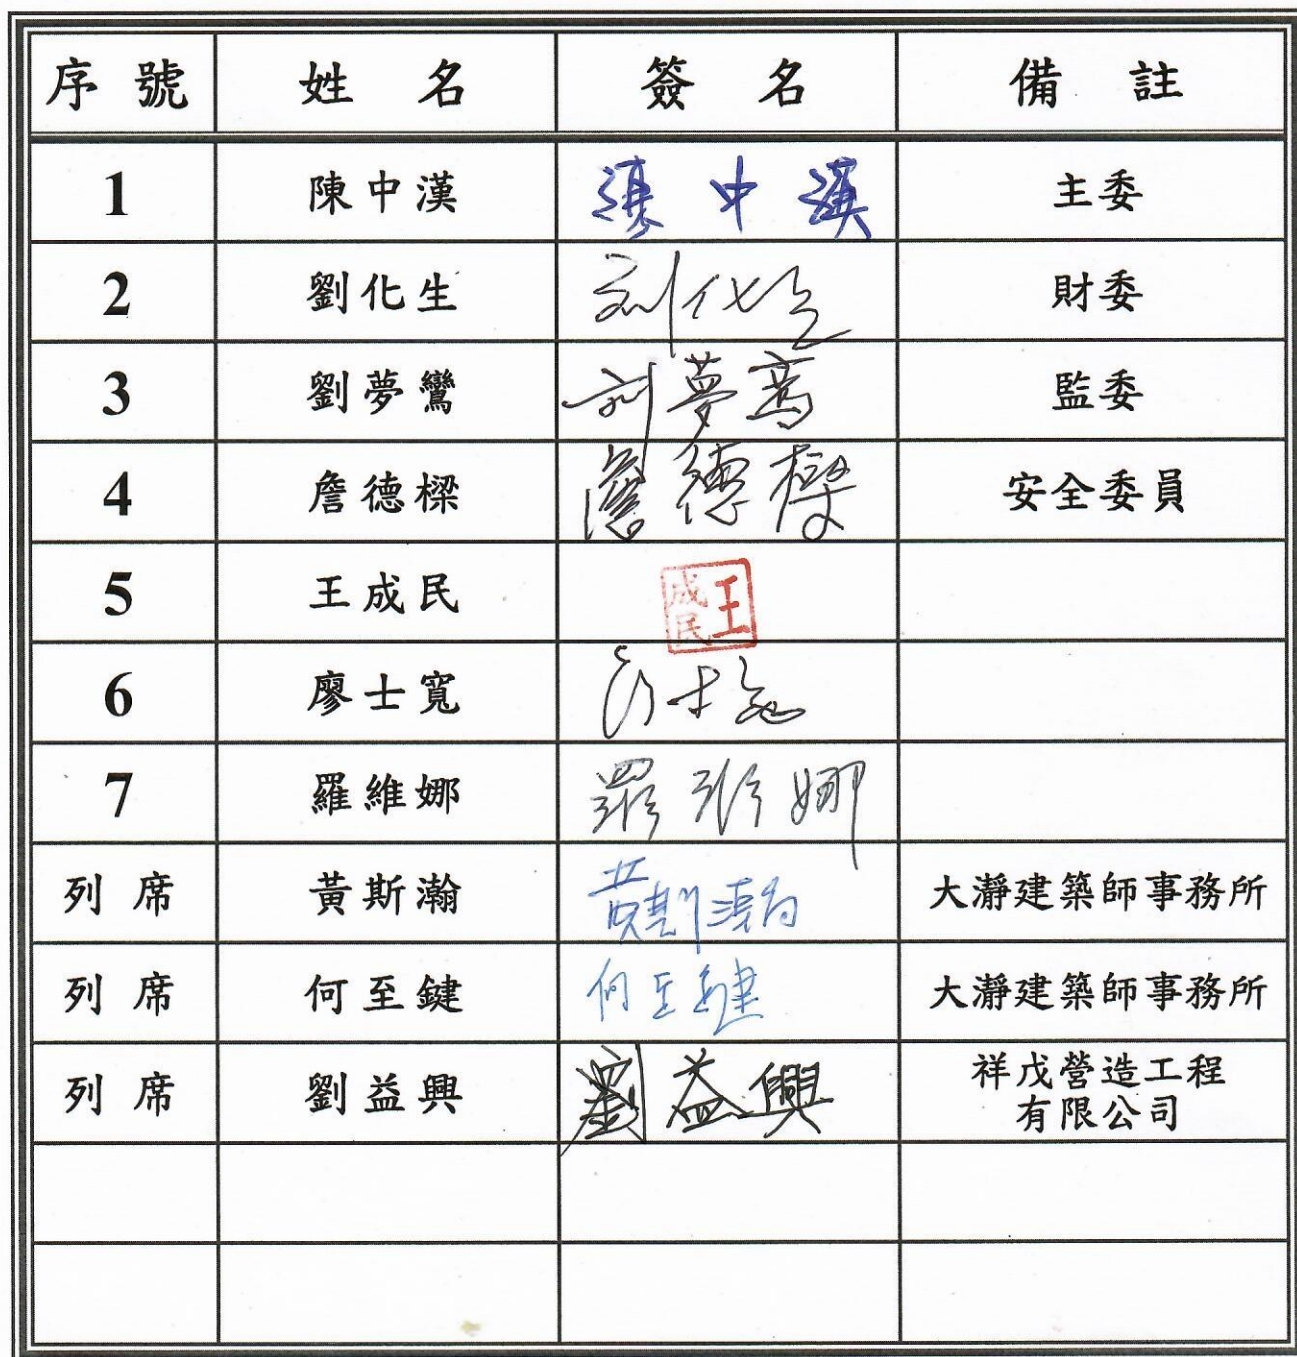 序號 姓名 簽名 備註
1 陳中漢 陳中漢 主委
2 劉化生 刘化生 財委
3 劉夢鸞 刘夢鸞 監委
4 詹德樑 詹德樑 安全委員
5 王成民 王成民
6 廖士寬
7 羅維娜 羅維娜
列席 黃斯瀚 黃斯瀚 大瀞建築師事務所
列席 何至鍵 何至鍵 大瀞建築師事務所
列席 劉益興 劉益興 祥戊營造工程
有限公司